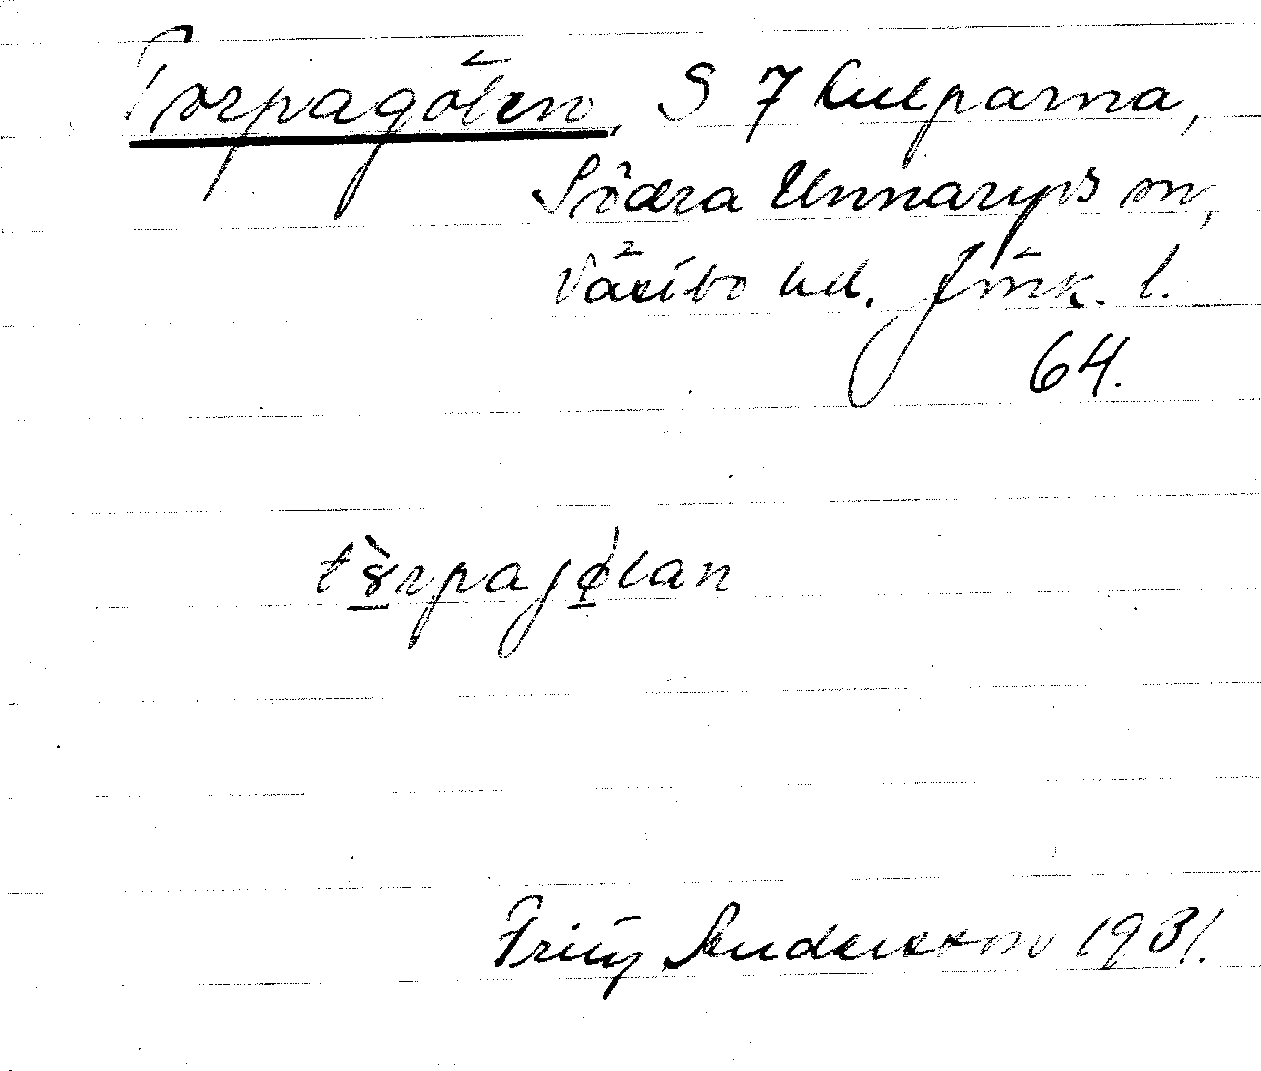 Torpagölen, S 7 Kulparna,
Södra Unnaryds sn,
Västbo hd. Jönk. l.
64.
tɣ̀rpajǿlan
Fritz Andersson 1931.